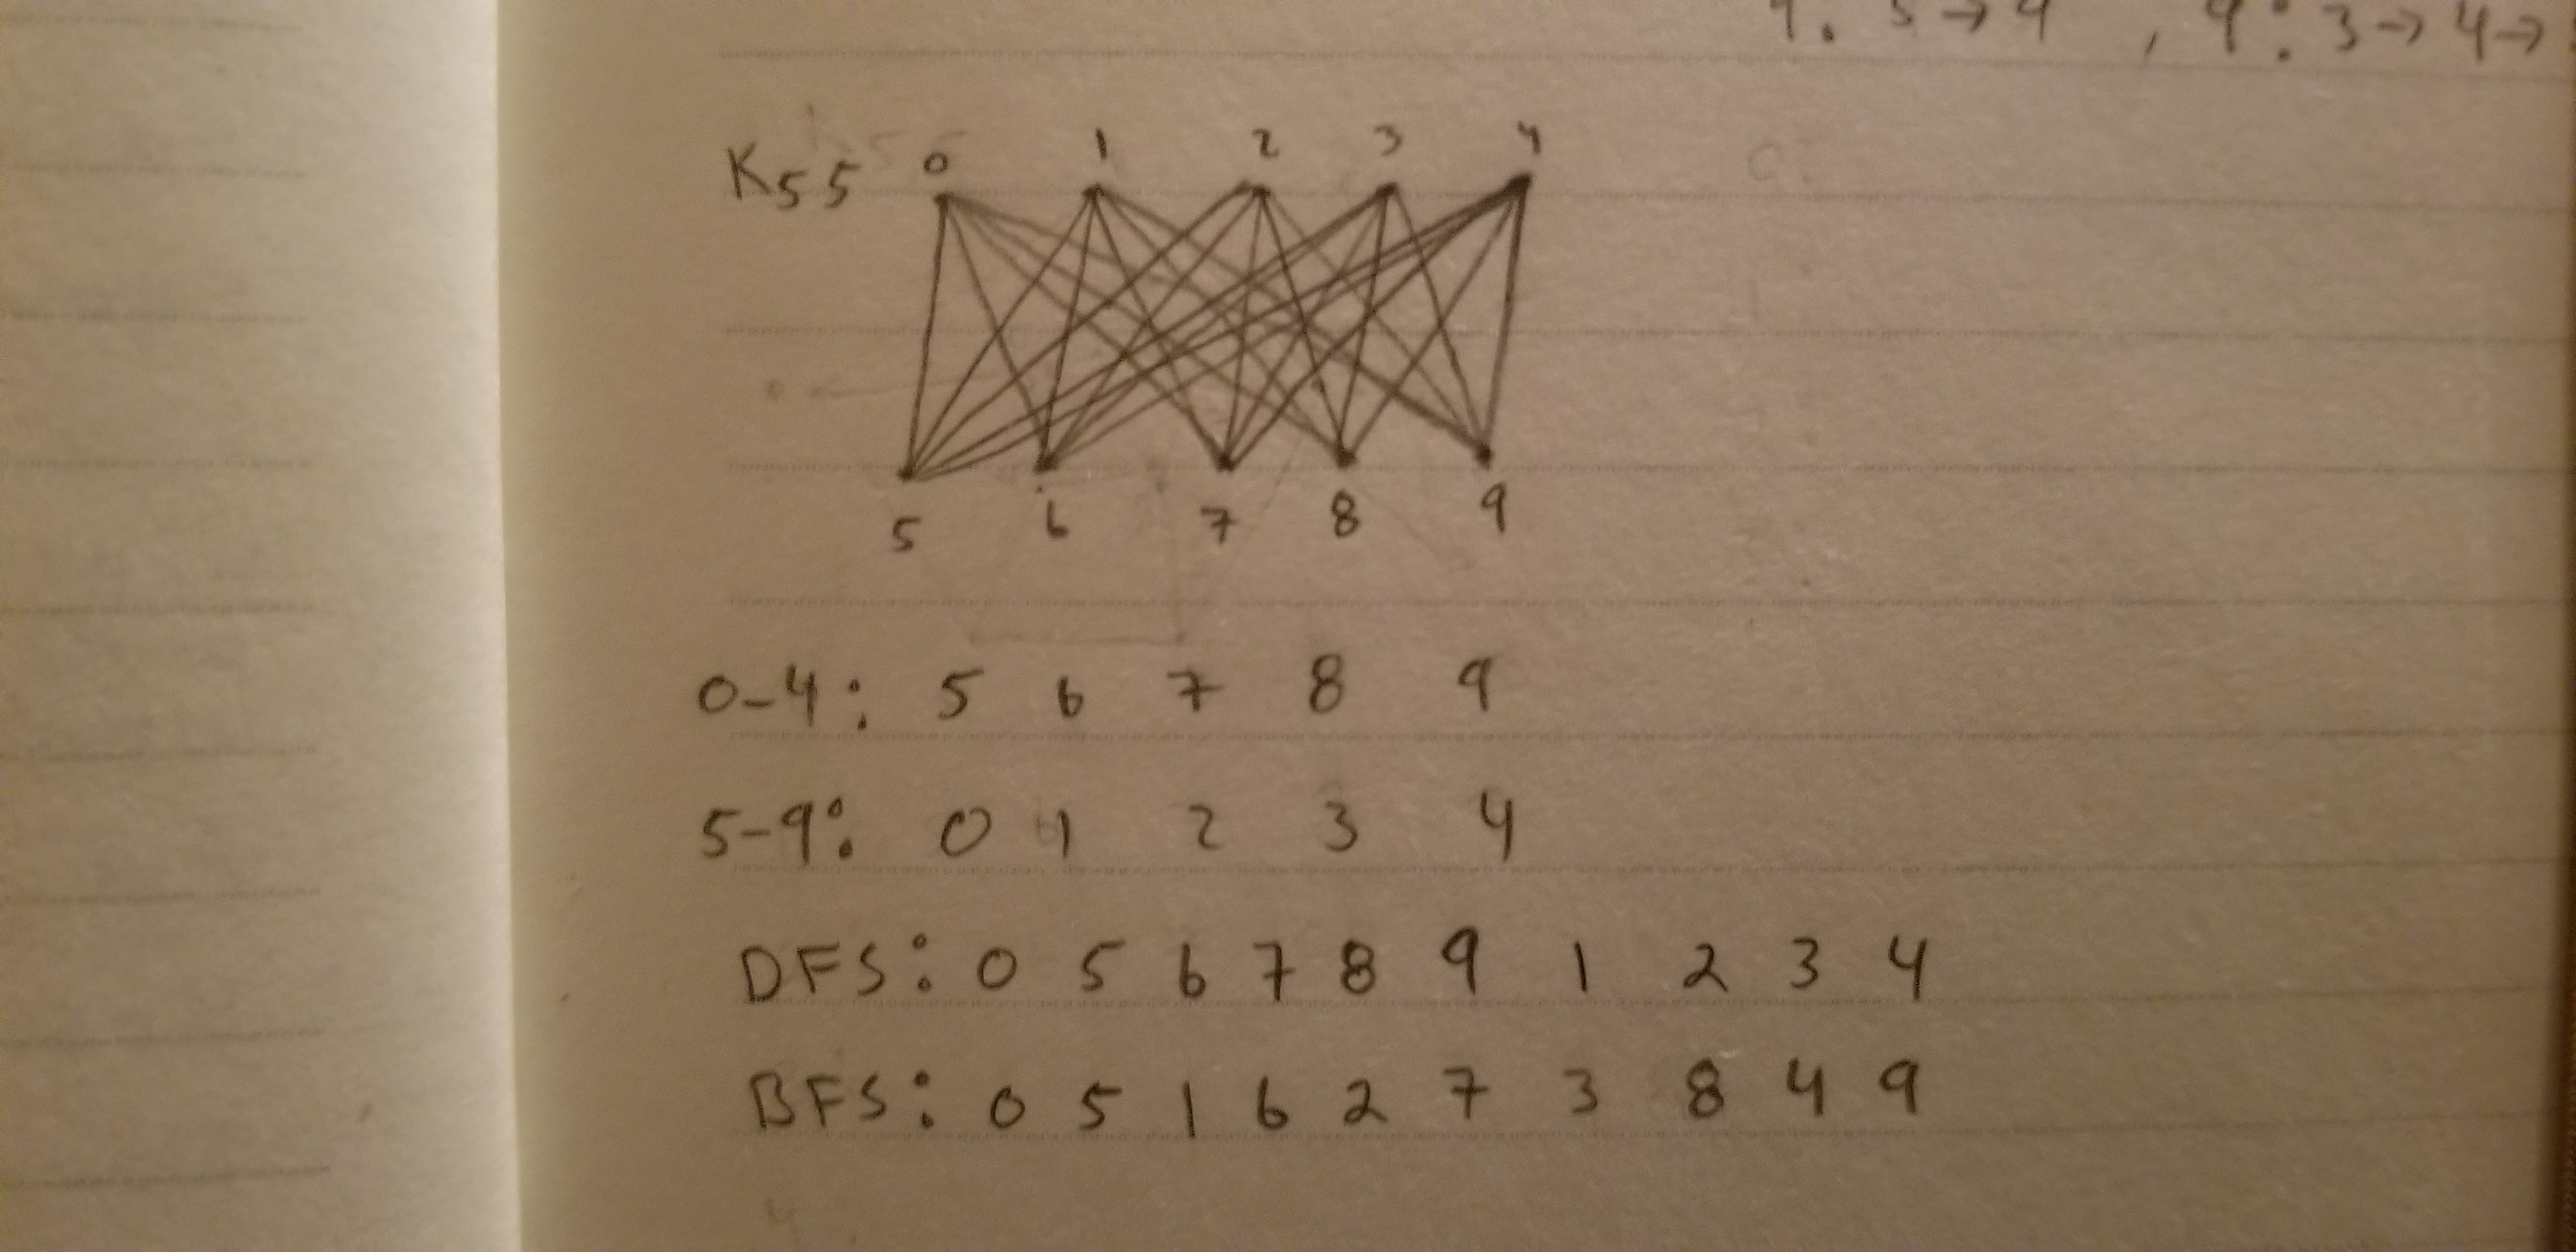 9: 3→4→
K55 0 1 2 3 4
5 6 7 8 9
0-4: 5 6 7 8 9
5-9: 0 1 2 3 4
DFS: 0 5 6 7 8 9 1 2 3 4
BFS: 0 5 1 6 2 7 3 8 4 9